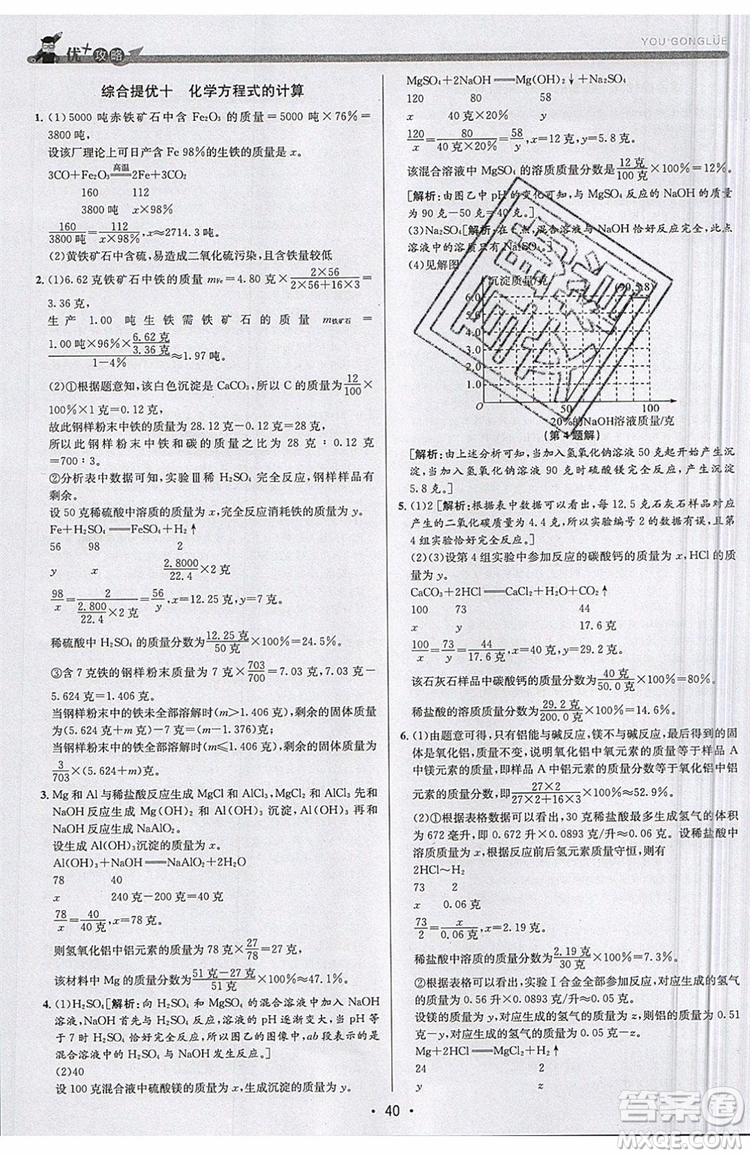 优+攻略
YOU+GONGLÜE
综合提优十 化学方程式的计算
1. (1)5000 吨赤铁矿石中含 Fe₂O₃ 的质量=5000 吨×76%=
3800 吨.
设该厂理论上可日产含 Fe 98%的生铁的质量是 x.
3CO+Fe₂O₃ 高温 2Fe+3CO₂
160 112
3800 吨 x×98%
160/3800 吨=112/(x×98%),x≈2714.3 吨.
(2)黄铁矿石中含硫,易造成二氧化硫污染,且含铁量低
2. (1)6.62 克铁矿石中质量 mFe=4.80 克×(2×56)/(2×56+16×3)=
3.36 克.
生产 1.00 吨生铁需铁矿石的质量 m铁矿石=
(1.00 吨×96%×6.62 克/3.36 克)/(1-4%)≈1.97 吨
(2)①根据题意知,该白色沉淀是 CaCO₃,所以 C 的质量=12/100
×100%×1 克=0.12 克.
故此钢样粉末中铁的质量=28.12 克-0.12 克=28 克.
所以此钢样粉末中铁和碳的质量比=28 克:0.12 克=
700:3.
②分析表中数据可知,实验Ⅲ稀 H₂SO₄ 完全反应,钢样样品有
剩余.
设 50 克稀硫酸中溶质的质量为 x,完全反应消耗铁的质量.
Fe+H₂SO₄=FeSO₄+H₂↑
56 98 2
y x 2.8000/22.4×2 克
98/x=2/(2.800/22.4×2 克)=56/y,x=12.25 克,y=7 克.
稀硫酸中 H₂SO₄ 的质量分数为12.25 克/50 克×100%=24.5%.
③含 7 克铁的钢样粉末质量=7 克×703/700=7.03 克,7.03 克-
5.624 克=1.406 克.
当钢样粉末中的铁未全部溶解时(m>1.406 克),剩余的固体质量
为(m-1.376)克;
当钢样粉末中的铁全部溶解时(m≤1.406 克),剩余的固体质量
为3/703×(m+5.624)克.
3. Mg 和 Al 与稀盐酸反应生成 MgCl 和 AlCl₃,MgCl 和 AlCl₃ 先和
NaOH 反应生成 Mg(OH)₂ 和 Al(OH)₃ 沉淀,Al(OH)₃ 再和
NaOH 反应生成 NaAlO₂.
设生成 Al(OH)₃ 沉淀的质量为 x.
Al(OH)₃+NaOH=NaAlO₂+2H₂O
78 40
x 240 克-200 克=40 克
78/x=40/40 克,x=78 克.
则氢氧化铝中铝元素的质量为78 克×27/78×100%=27 克.
该材料中 Mg 的质量分数为(51 克-27 克)/51 克×100%≈47.1%.
4. (1)H₂SO₄[解析:向 H₂SO₄ 和 MgSO₄ 的混合溶液中加入 NaOH
溶液,NaOH 首先与 H₂SO₄ 反应,溶液的 pH 逐渐变大,当 pH
开始保持不变时,溶液中的 H₂SO₄ 完全反应,由图可知,ab 段表示的是
H₂SO₄ 与 NaOH 发生反应.]
(2)40
设 100 克混合液中硫酸镁的质量为 x,生成沉淀的质量为 y.
MgSO₄+2NaOH=Mg(OH)₂↓+Na₂SO₄
120 80 58
x 40 克×20% y
120/x=80/(40 克×20%)=58/y,x=12 克,y=5.8 克.
该混合溶液中 MgSO₄ 的溶质质量分数=12 克/100 克×100%=12%.
[解析:由图乙中 pH 的变化可知,与 MgSO₄ 反应的 NaOH 的质量
为 90 克-50 克=40 克.]
(3)Na₂SO₄[解析:在 c 点,混合溶液与 NaOH 恰好反应完全,此时
溶液中的溶质只有 Na₂SO₄.]
(4)见解图
沉淀质量/克
6.0
5.0
4.0
3.0
2.0
1.0
0
50
100
(90,5.8)
20%的NaOH溶液质量/克
(第 4 题解)
[解析:由上述分析可知,当加入氢氧化钠溶液 50 克起开始产生沉
淀,当加入氢氧化钠溶液 90 克时硫酸镁完全反应,产生沉淀
5.8 克.]
5. (1)2[解析:根据表中数据可以看出,每 12.5 克石灰石样品对应
产生的二氧化碳质量为 4.4 克,所以实验中第 2 组恰好反应,且第
4 组实验中样品过量.]
(2)(3)设第 4 组实验中参加反应的碳酸钙的质量为 x,HCl 的质
量为 y.
CaCO₃+2HCl=CaCl₂+H₂O+CO₂↑
100 73 44
x y 17.6克
100/x=73/y=44/17.6 克,x=40 克,y=29.2克.
该石灰石样品中碳酸钙的质量分数=40 克/50 克×100%=80%;
稀盐酸的溶质质量分数=29.2 克/200 克×100%=14.6%.
6. (1)由题意可得,只有铝能与碱反应,镁不与碱反应,残留的固
体是氧化铝,质量不变,说明氧化铝中氧元素的质量等于样品 A
中镁元素的质量,即样品 A 中铝元素的质量分数等于氧化铝中铝
元素的质量分数=(27×2)/(27×2+16×3)×100%≈52.9%.
(2)①根据表格数据可以看出,30 克稀盐酸最多生成氢气的体积
为 672 毫升,即 0.672 升×0.0893 克/升≈0.06 克.设稀盐酸中
溶质质量为 x,根据反应前后氢元素质量不变,有如下关系:
2HCl~H₂
73 2
x 0.06 克
73/x=2/0.06 克,x=2.19 克.
稀盐酸的溶质质量分数=2.19 克/30 克×100%=7.3%.
②根据表格数据可以看出,实验Ⅰ合金全部参加反应,生成的氢气
的质量为 0.56 升×0.0893 克/升≈0.05 克.
设镁的质量为 x,对应生成的氢气的质量为 y,铝的质量为 0.51
克-x,对应生成的氢气的质量为 0.05 克-y.
Mg+2HCl=MgCl₂+H₂↑
24 2
x y
• 40 •
答案圈
MXQE.COM